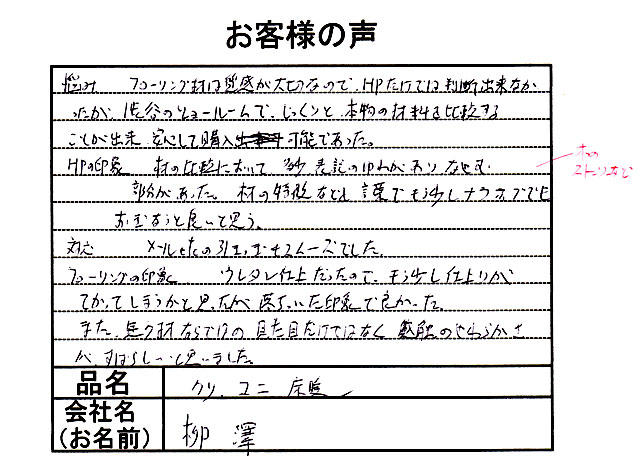 お客様の声
悩み フローリング材は質感が大切なので、HPだけでは判断出来なか
ったが、渋谷のショールームで、じっくりと本物の材料を比較する
ことが出来 安心して購入 可能であった。
HPの印象 材の比較において 多少 表記の
部分があった。材の特徴なども 言葉でもう少し
と良いと思う。
対応 メールetcの スムーズでした。
フローリングの印象 ウレタン仕上だったので、もう少し仕上りが
てかってしまうかと思ったが 落ちついた印象で良かった。
また、無ク材ならではの 見た目だけではなく 感触のやわらかさ
がすばらしいと思いました。
品名 クリ ユニ 床暖
会社名
(お名前) 柳澤